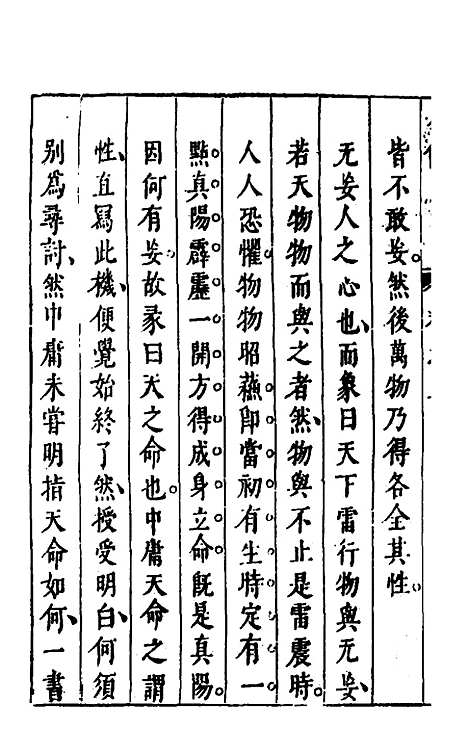 皆不敢妄然後萬物乃得各全其性
无妄人之心也而象曰天下雷行物與无妄
若天物物而與之者然物與不止是雷震時
人人恐懼物物昭蘓即當初有生時定有一
點真陽霹靂一開方得成身立命既是真陽
因何有妄故彖曰天之命也中庸天命之謂
性直寫此機便覺始終了然授受明白何須
別為尋討然中庸未嘗明指天命如何一書